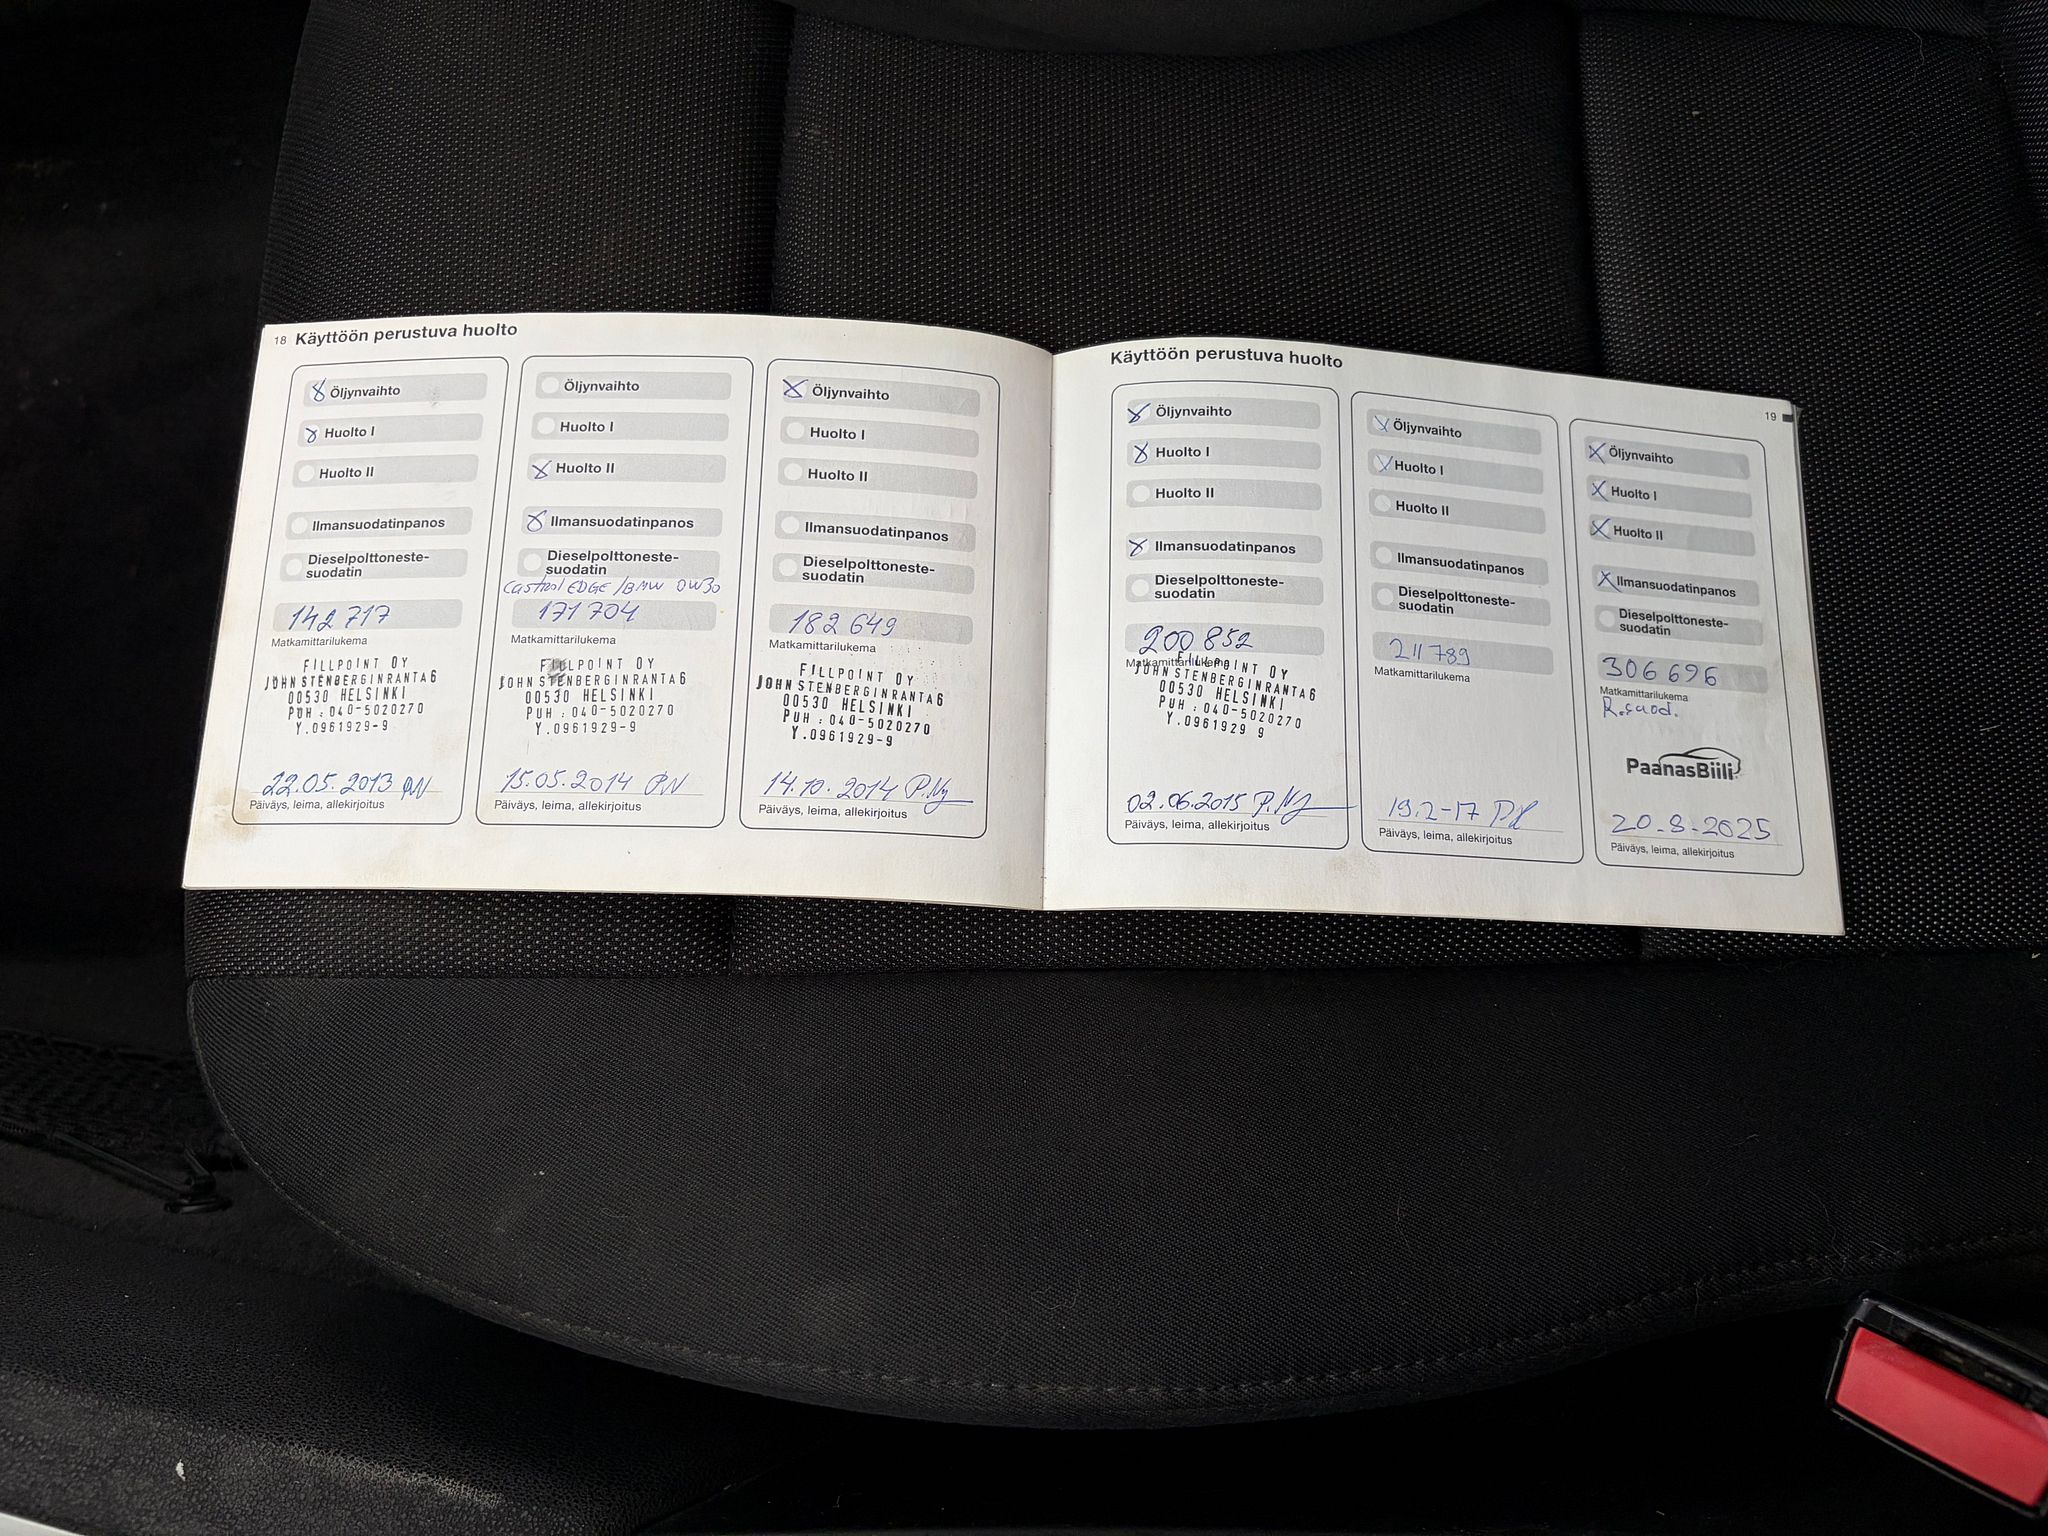 18 Käyttöön perustuva huolto
Öljynvaihto
Huolto I
Huolto II
Ilmansuodatinpanos
Dieselpolttoneste-
suodatin
142 717
Matkamittarilukema
FILLPOINT OY
JOHN STENBERGINRANTA6
00530 HELSINKI
PUH : 040-5020270
Y.0961929-9
22.05.2013 PN
Päiväys, leima, allekirjoitus
Öljynvaihto
Huolto I
Huolto II
Ilmansuodatinpanos
Dieselpolttoneste-
suodatin
Castrol EDGE /BMW 0W30
171 704
Matkamittarilukema
FILLPOINT OY
JOHN STENBERGINRANTA6
00530 HELSINKI
PUH : 040-5020270
Y.0961929-9
15.05.2014 PN
Päiväys, leima, allekirjoitus
Öljynvaihto
Huolto I
Huolto II
Ilmansuodatinpanos
Dieselpolttoneste-
suodatin
182 649
Matkamittarilukema
FILLPOINT OY
JOHN STENBERGINRANTA6
00530 HELSINKI
PUH : 040-5020270
Y.0961929-9
14.10.2014 P.Ny
Päiväys, leima, allekirjoitus
Käyttöön perustuva huolto
19
Öljynvaihto
Huolto I
Huolto II
Ilmansuodatinpanos
Dieselpolttoneste-
suodatin
200 852
Matkamittarilukema
FILLPOINT OY
JOHN STENBERGINRANTA6
00530 HELSINKI
PUH : 040-5020270
Y.0961929 9
02.06.2015 P.Ny
Päiväys, leima, allekirjoitus
Öljynvaihto
Huolto I
Huolto II
Ilmansuodatinpanos
Dieselpolttoneste-
suodatin
211 789
Matkamittarilukema
19.2-17
Päiväys, leima, allekirjoitus
Öljynvaihto
Huolto I
Huolto II
Ilmansuodatinpanos
Dieselpolttoneste-
suodatin
306 696
Matkamittarilukema
R.suod.
PaanasBiili
20-8-2025
Päiväys, leima, allekirjoitus